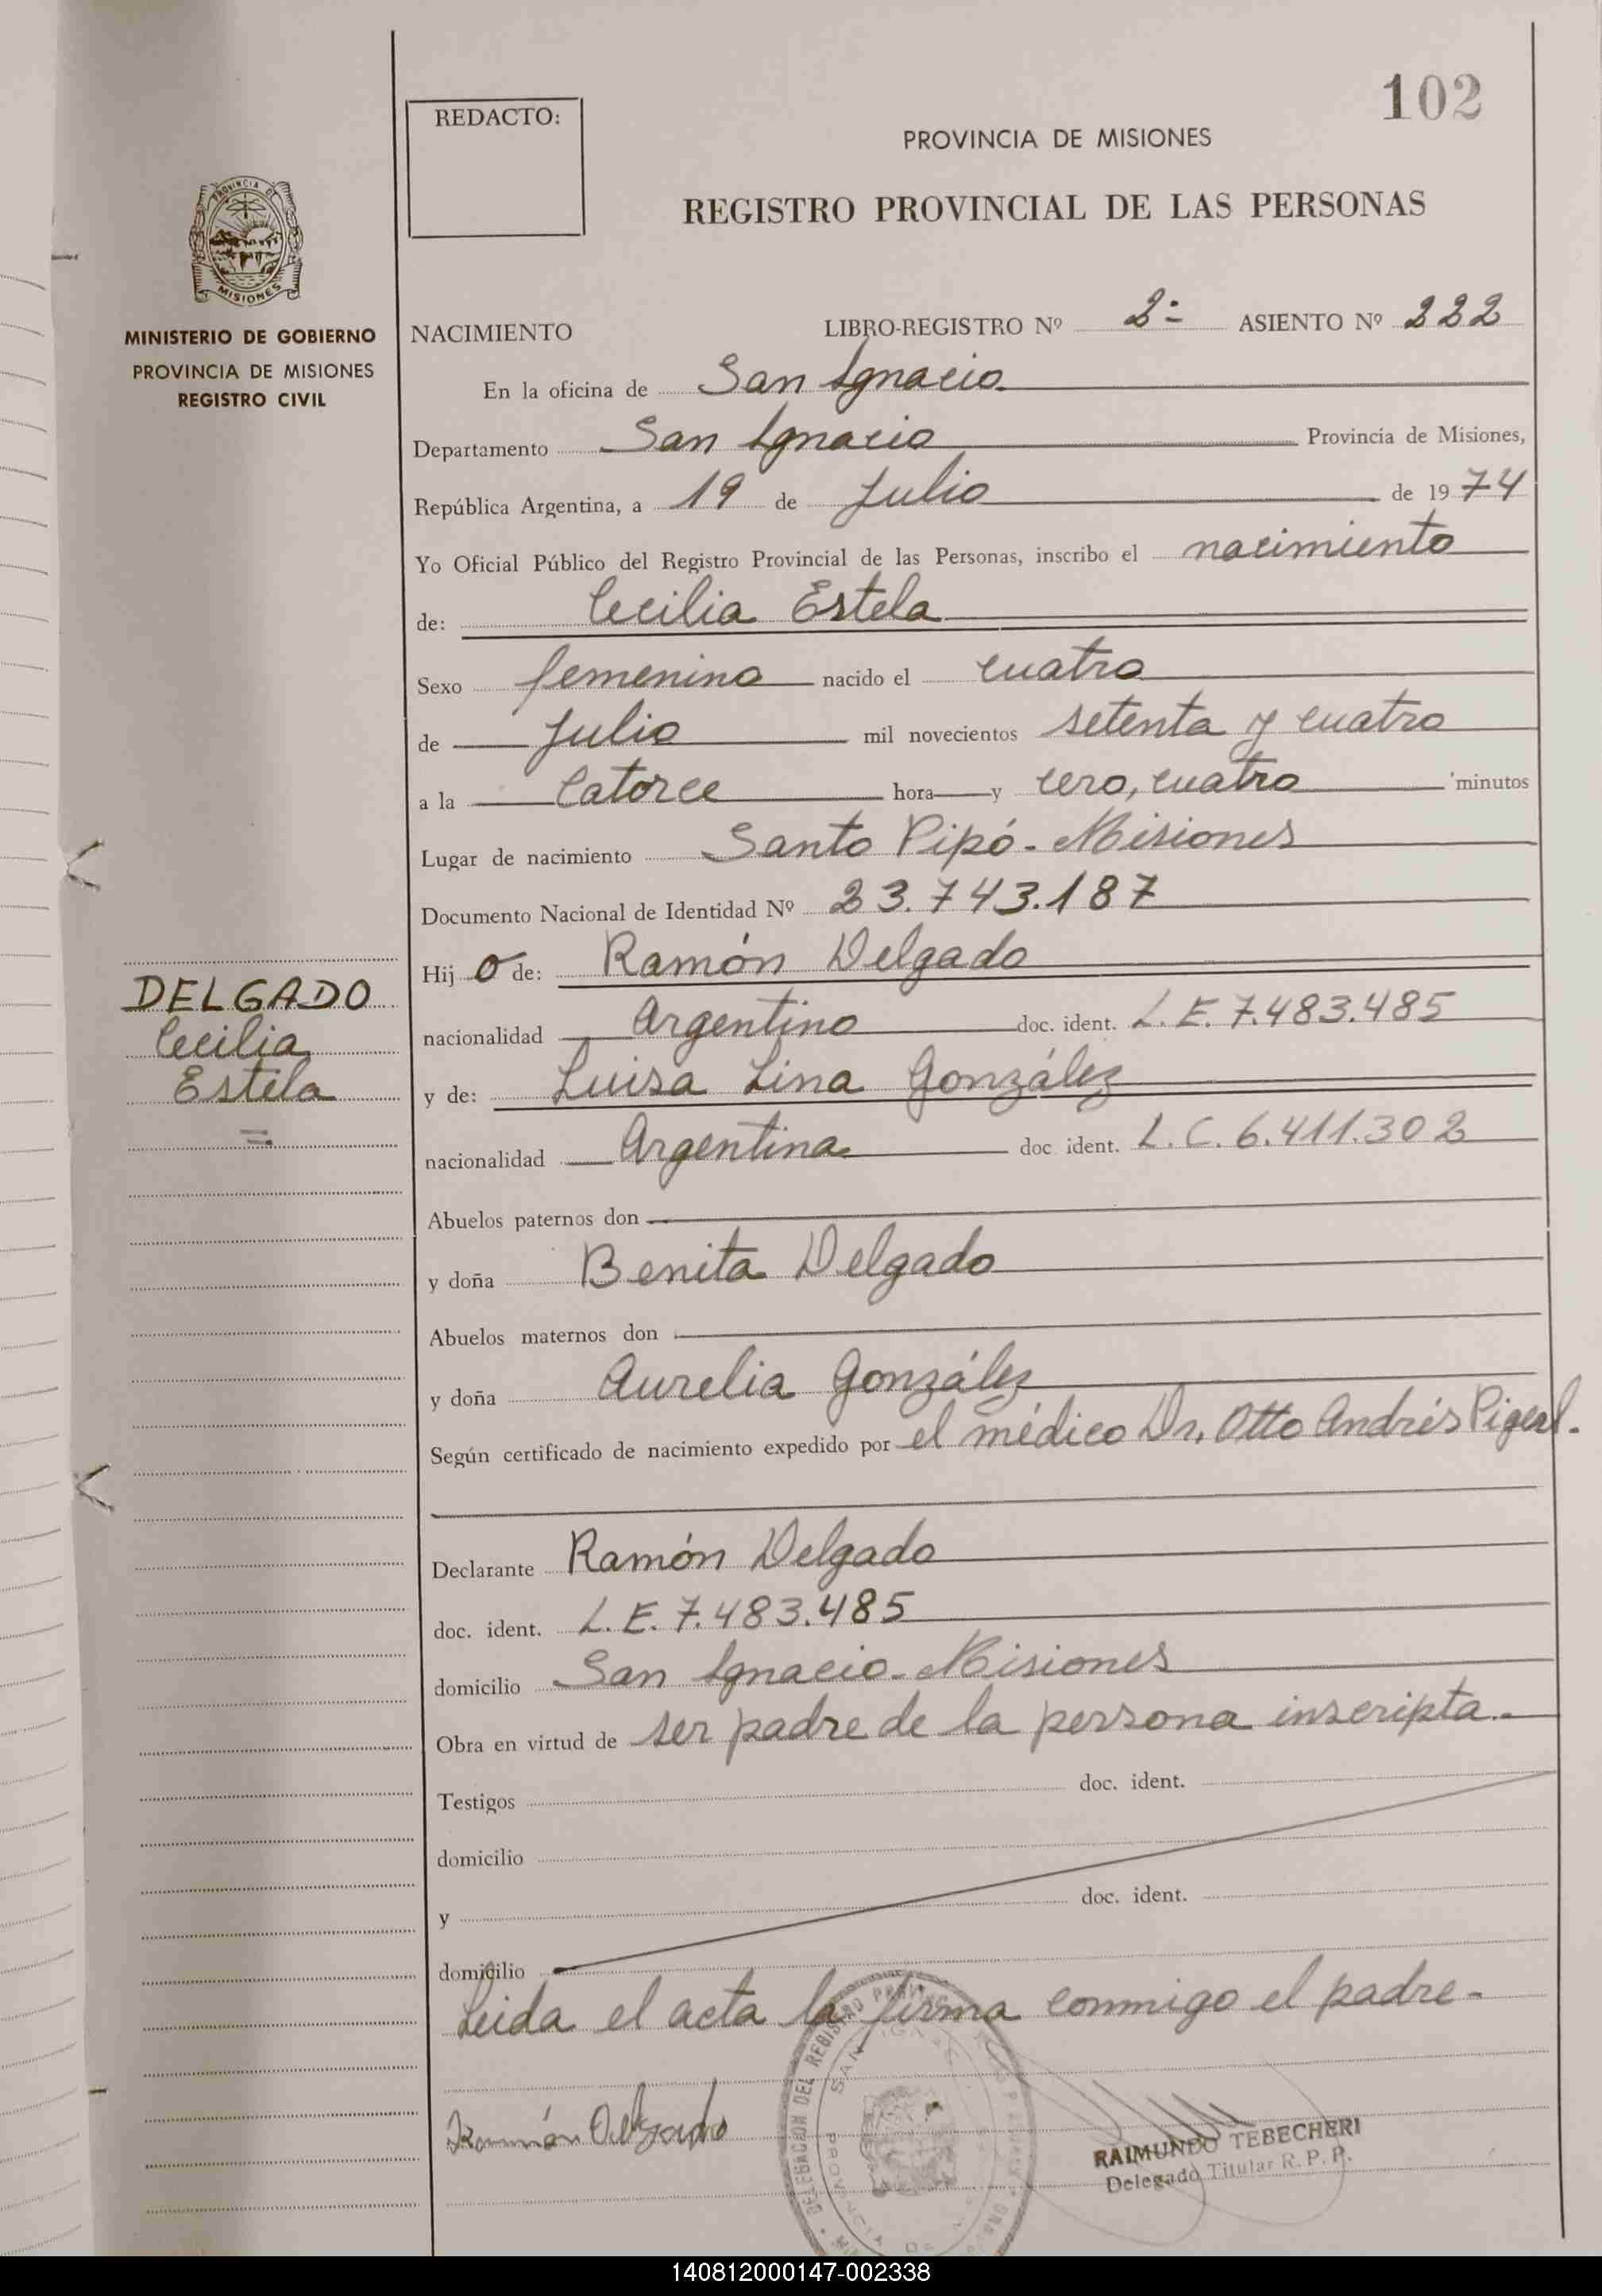 102
REDACTO:
PROVINCIA DE MISIONES
REGISTRO PROVINCIAL DE LAS PERSONAS
PROVINCIA DE
MISIONES
MINISTERIO DE GOBIERNO
PROVINCIA DE MISIONES
REGISTRO CIVIL
NACIMIENTO LIBRO-REGISTRO Nº 2= ASIENTO Nº 222
En la oficina de San Ignacio
Departamento San Ignacio Provincia de Misiones,
República Argentina, a 19 de Julio de 1974
Yo Oficial Público del Registro Provincial de las Personas, inscribo el nacimiento
de: Cecilia Estela
Sexo femenino nacido el cuatro
de Julio mil novecientos setenta y cuatro
a la Catorce hora y cero, cuatro minutos
Lugar de nacimiento Santo Pipó - Misiones
Documento Nacional de Identidad Nº 23.743.187
Hij o de: Ramón Delgado
DELGADO
Cecilia
Estela
=
nacionalidad Argentino doc. ident. L.E. 7.483.485
y de: Luisa Lina González
nacionalidad Argentina doc ident. L.C. 6.411.302
Abuelos paternos don
y doña Benita Delgado
Abuelos maternos don
y doña Aurelia González
Según certificado de nacimiento expedido por el médico Dr. Otto Andrés
Declarante Ramón Delgado
doc. ident. L.E. 7.483.485
domicilio San Ignacio - Misiones
Obra en virtud de ser padre de la persona inscripta.-
Testigos doc. ident.
domicilio
y doc. ident.
domicilio
Leida el acta la firma conmigo el padre-
Ramón Delgado
DELEGACION DEL REGISTRO
RAIMUNDO TEBECHERI
Delegado Titular R. P. P.
140812000147-002338